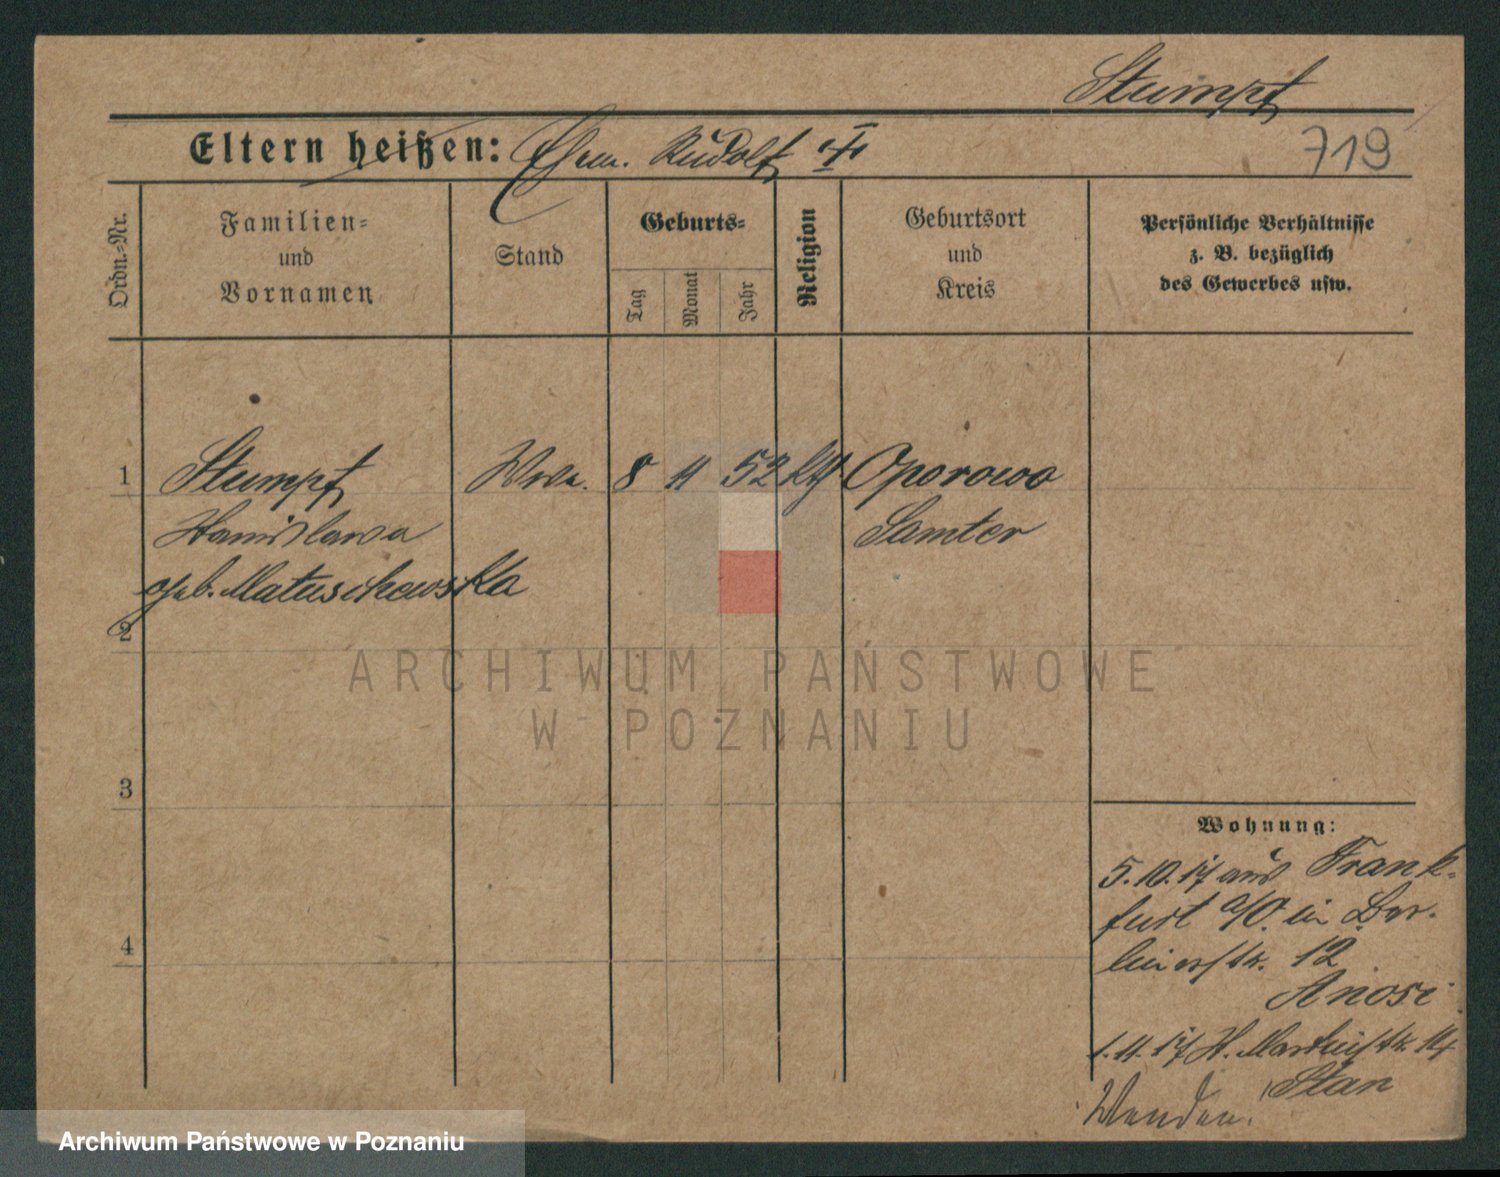 Stumpf
Eltern heißen: Ehem. Rudolf
719
Ordn.-Nr.
Familien-
und
Vornamen
Stand
Geburts-
Tag
Monat
Jahr
Religion
Geburtsort
und
Kreis
Persönliche Verhältnisse
z. B. bezüglich
des Gewerbes usw.
1 Stumpf Wwe. 8 11 52 kth Oporowo
Stanislawa Samter
geb. Matuschewska
2
3
4
Wohnung:
5.10.17 aus Frank-
furt a/O. in Ber-
linerstr. 12
1.11.17 St. Martinstr. 14
Stan
Wenden!
ARCHIWUM PAŃSTWOWE
W POZNANIU
Archiwum Państwowe w Poznaniu